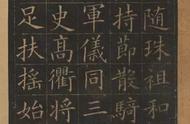 随珠祖和
持節散騎
軍儀同三
史高衢将
足扶摇始